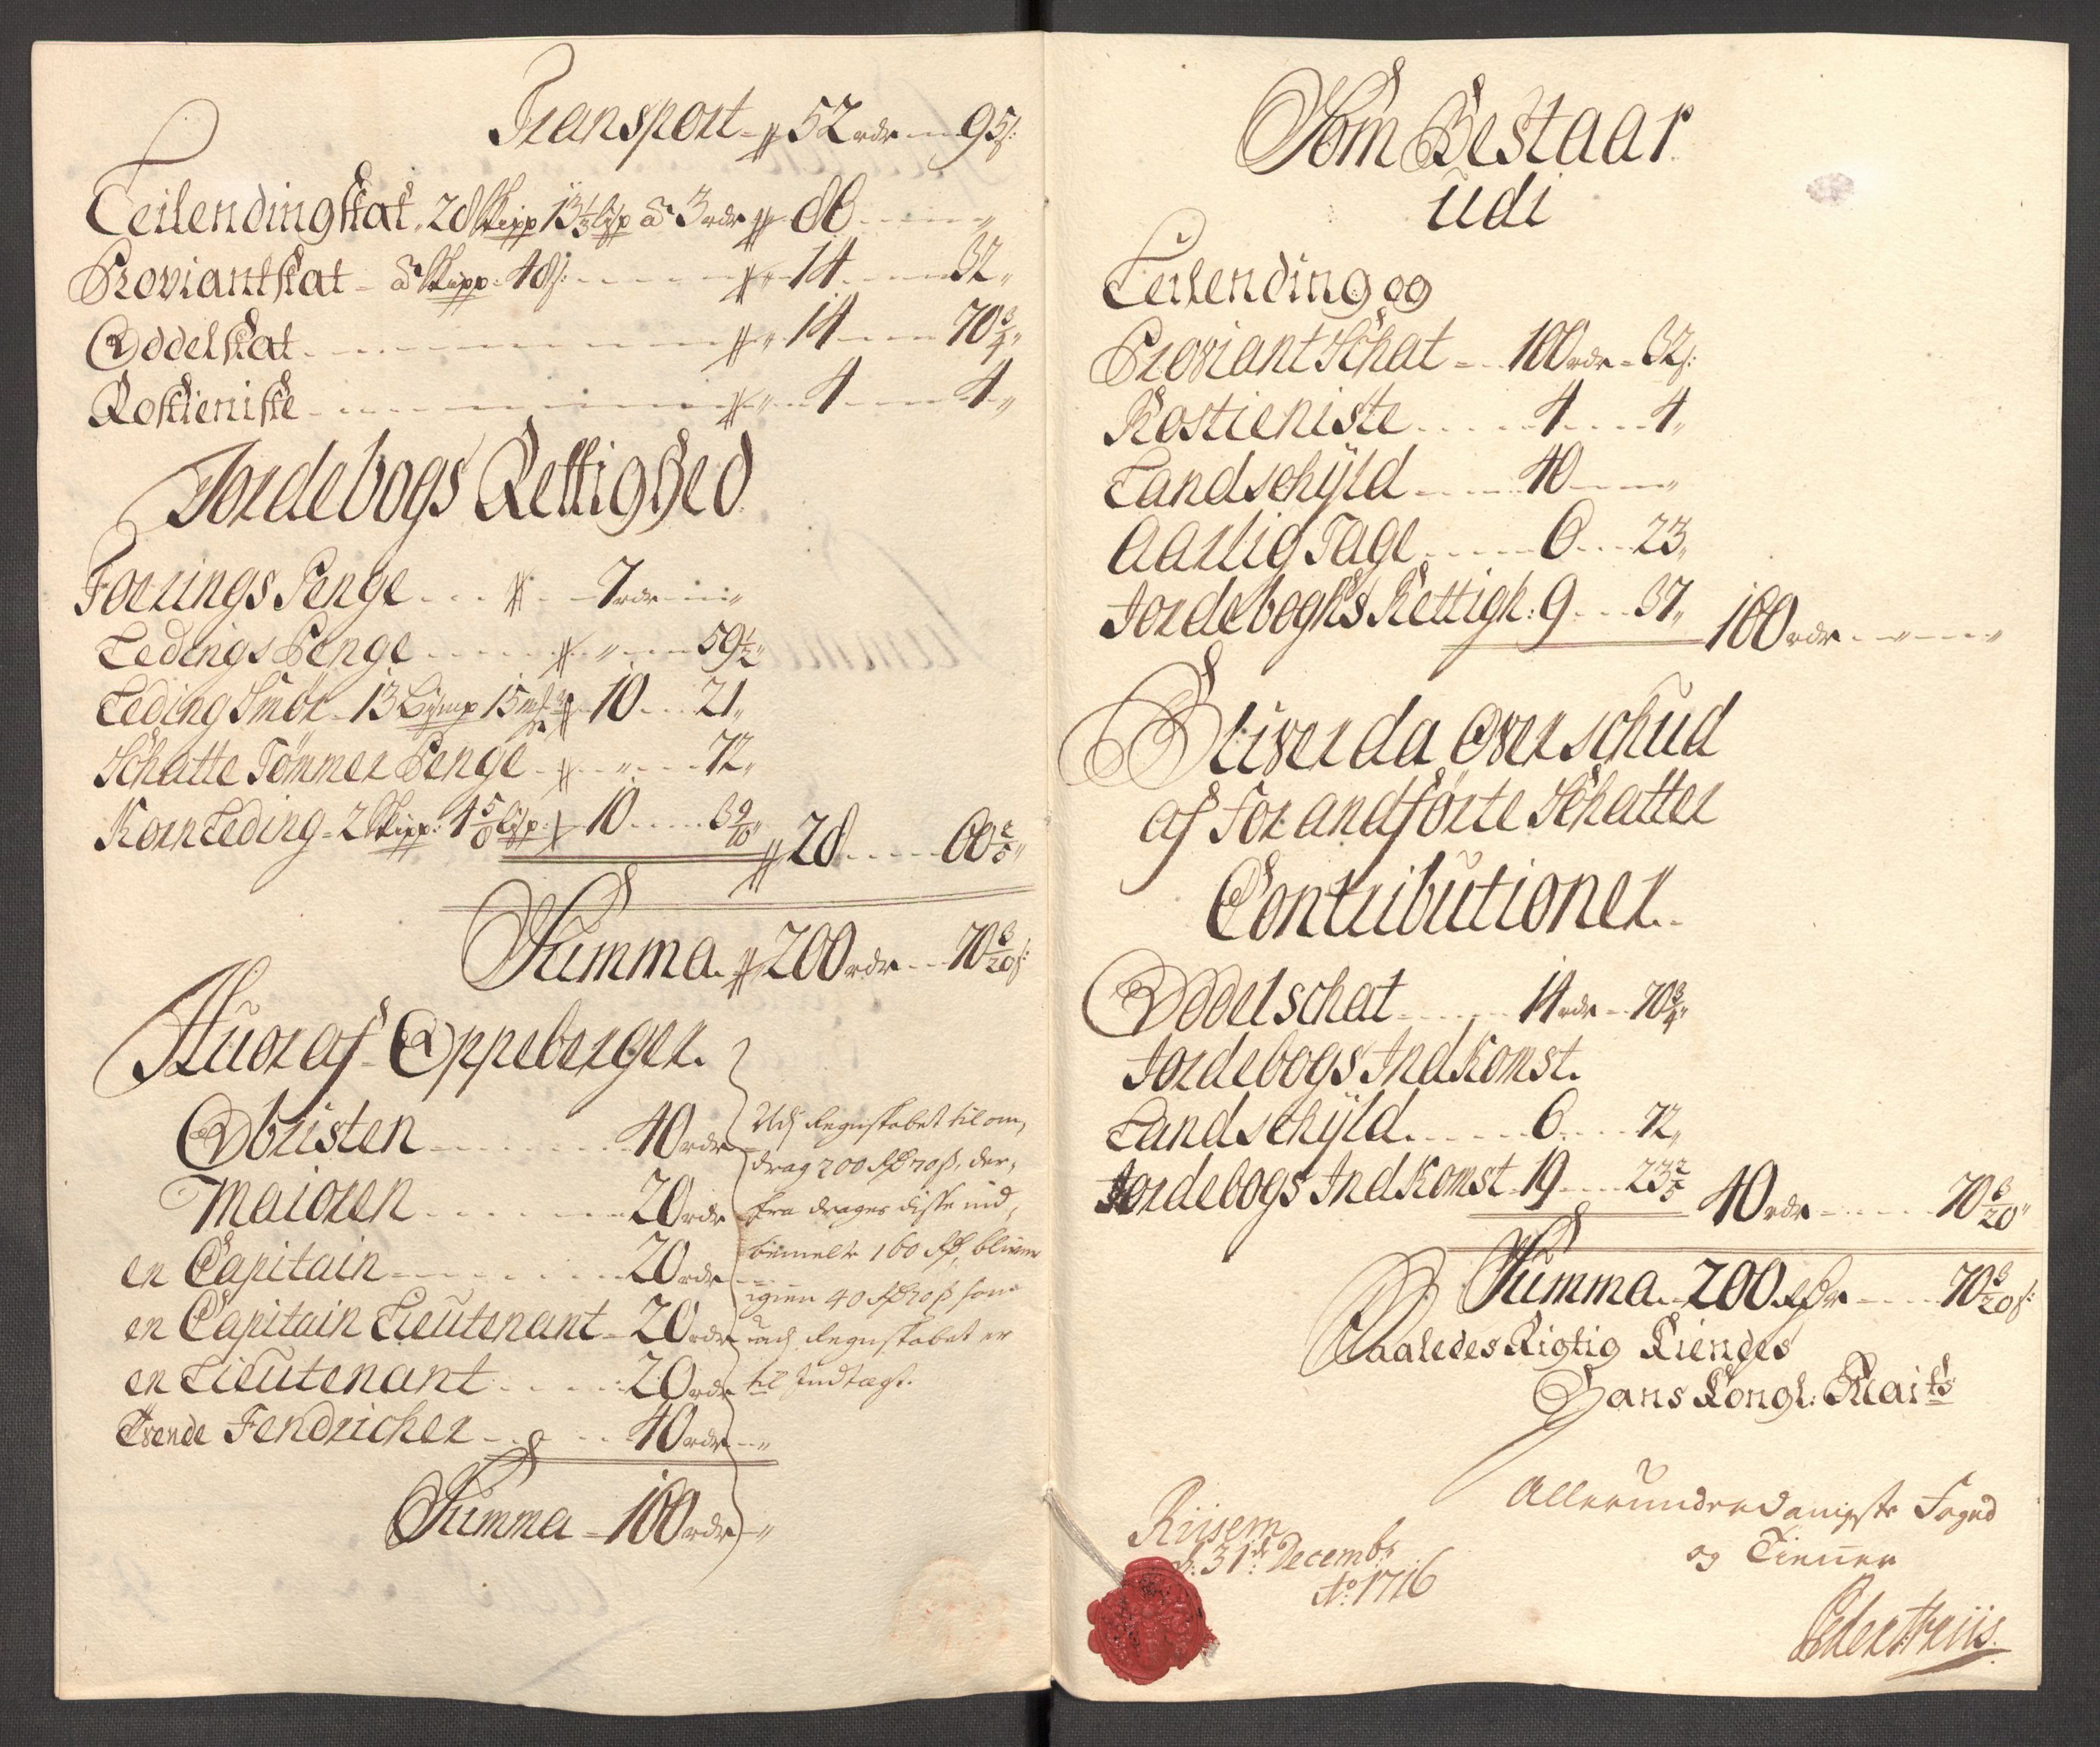 Transport - 52 rdr - 95 s:
Leilendingskat. 28 Skipp 13 1/3 Lisp a 3 rdr 86 - "
Proviantskat - a Skipp. 48 s: - 14 - 32 "
Oddelskat - 14 - 70 3/4 "
Rostieniste - 4 - 4 "
Jordebogs Rettighed
Foerings Penge - 7 rdr - "
Ledings Penge - " - 59 1/2 "
Leding Smör - 13 - 10 - 21 "
Schatte Tömmer Penge - " - 72 "
Korn Leding - 2 Skipp: 4 5/6 Lisp: 10 - 3 9/10 "
28 - 60 2/5 "
Summa. 200 rdr - 70 3/20 s:
Huor af Oppeberger.
Obristen - 40 rdr
Maioren - 20 rdr
en Capitain - 20 rdr
en Capitain Lieutenant - 20 rdr
en Lieutenant - 20 rdr
Tvende Fendricher - 40 rdr - "
Summa - 160 rdr - "
Udj Regnskabet til om,
drag 200 Rd 70 s, der,
fra drages disse ind,
bemelte 160 Rd, bliver
igien 40 Rd 70 s som
udj Regnskabet er
til Indtægt.
Som Bestaar
udi
Leilending og
Proviant Schat - 100 rdr - 32 s:
Rostieniste - 4 - 4 "
Landschÿld - 40 - "
Aarlig Tage - 6 - 23 "
Jordeboghs Rettigh: 9 - 37 " 160 rdr - "
Bliver da Overschud
af For andförte Schatter
Contributioner.
Oddelschat - 14 rdr - 70 3/4 "
Jordebogs Indkomst.
Landschÿld - 6 - 72 "
Jordebogs Indkomst 19 - 23 2/5 40 rdr - 70 3/20 "
Summa - 200 Rdr - 70 3/20 s:
Saaledes Rigtig Kiendes
Hans Kongl: Maits
Allerunderdanigste Foged
og Tiener
Riisem
d: 31te Decembr
Ao 1716
Peder Friis.